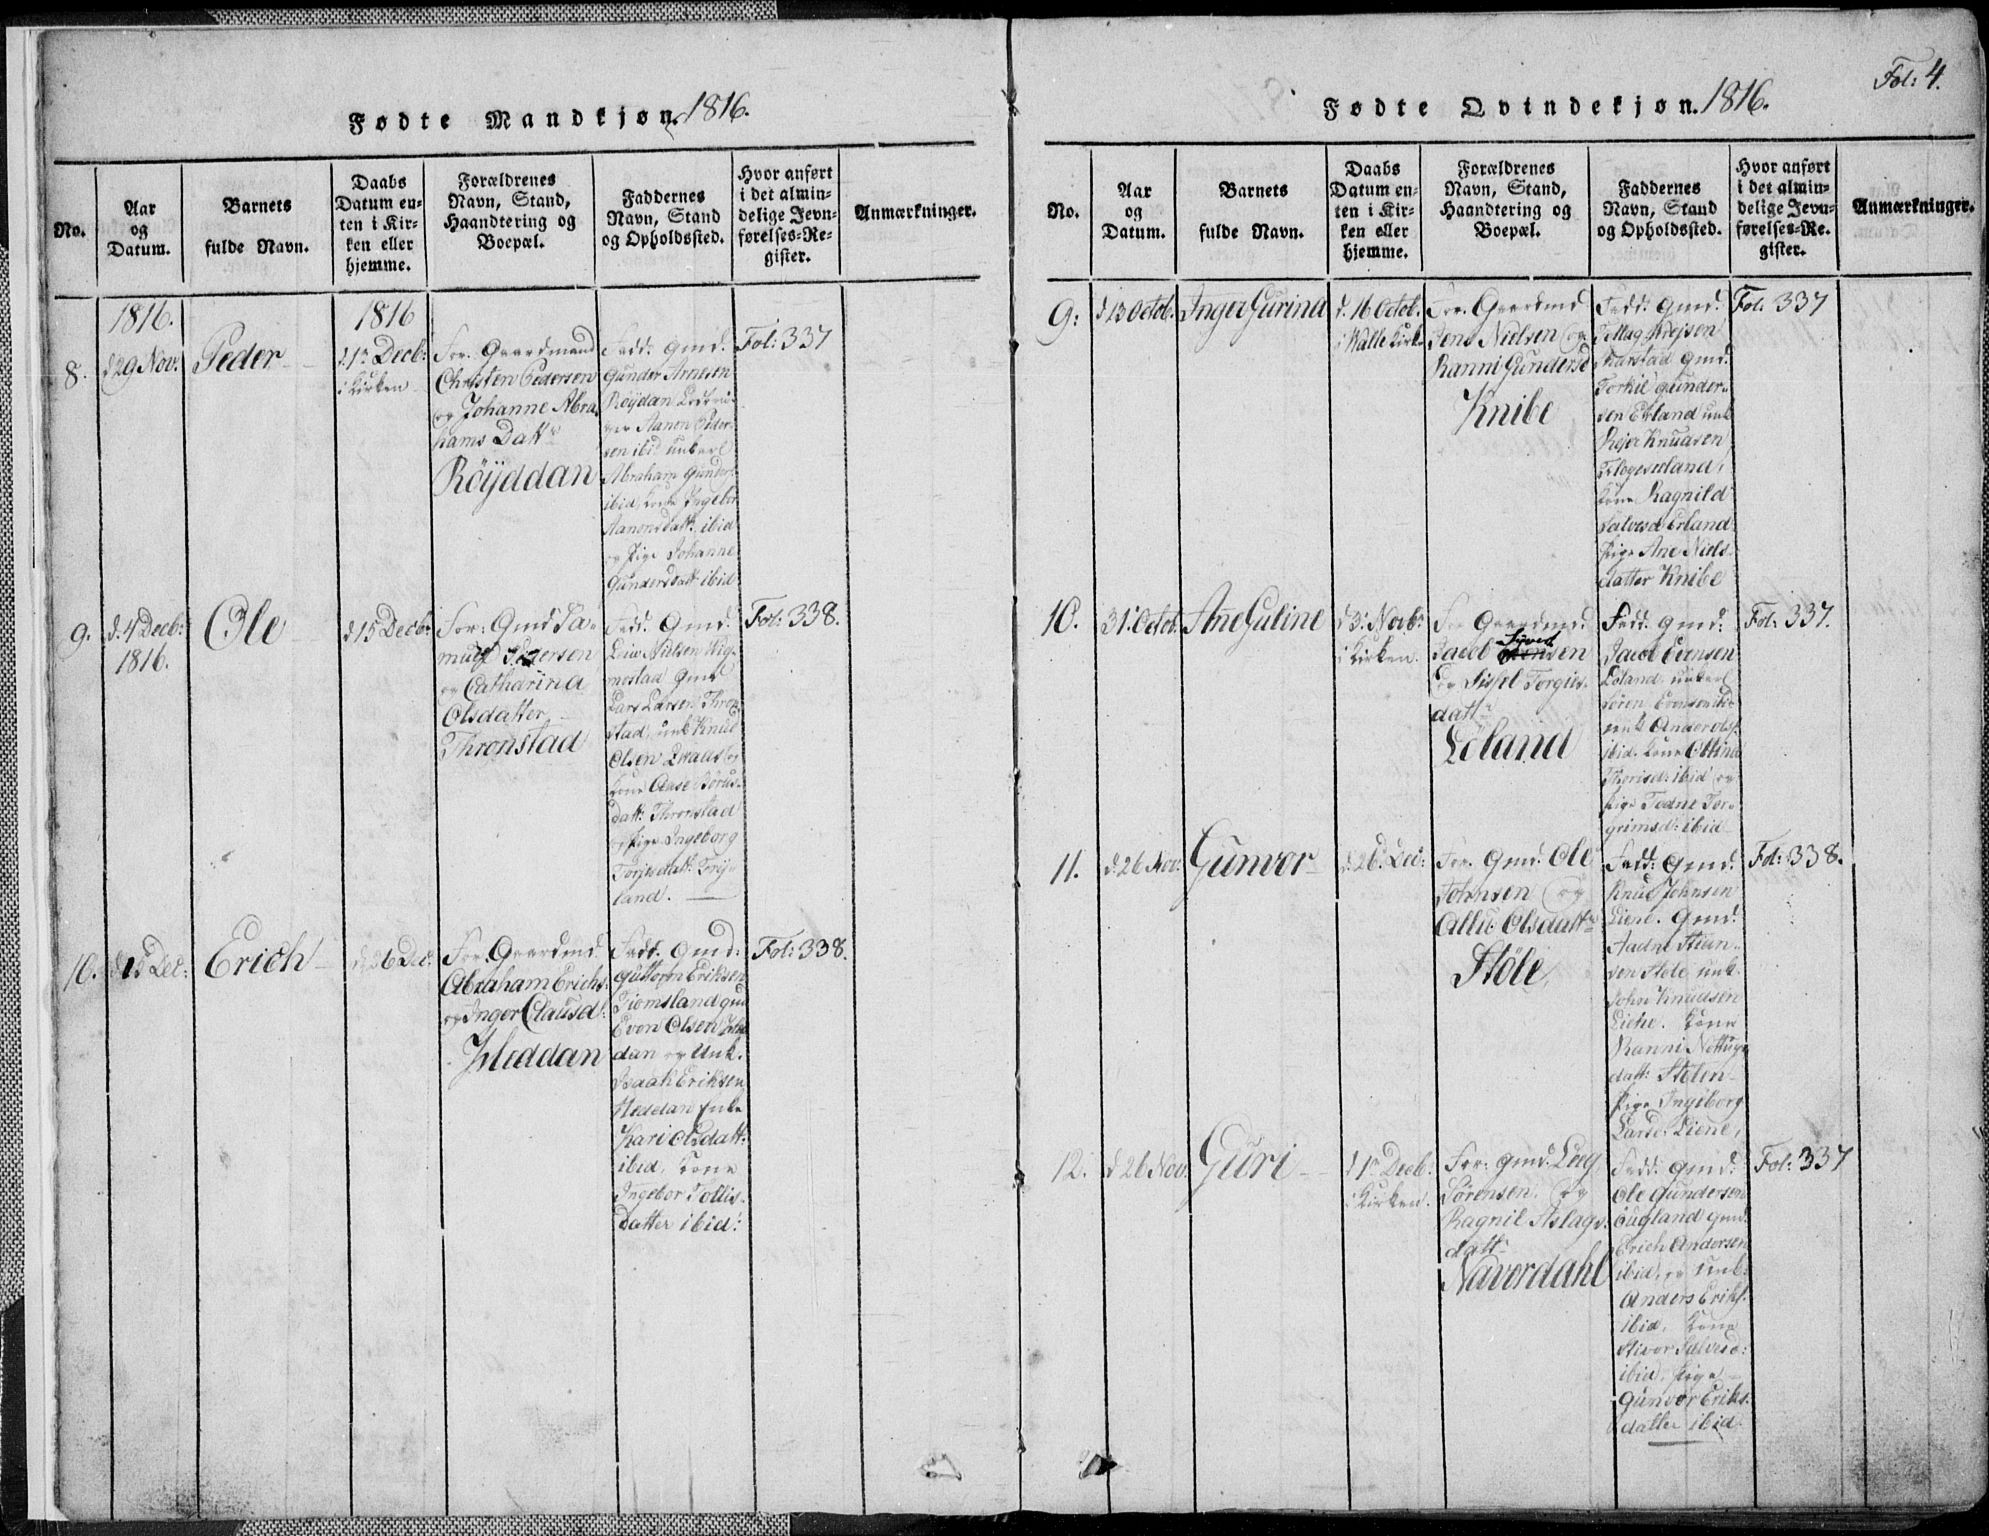 Fødte Mandkjøn. 1816.
No.
Aar
og
Datum.
Barnets
fulde Navn.
Daabs
Datum en-
ten i Kir-
ken eller
hjemme.
Forældrenes
Navn, Stand,
Haandtering og
Boepæl.
Faddernes
Navn, Stand
og Opholdssted.
Hvor anført
i det almin-
delige Jevn-
førelses-Re-
gister.
Anmærkninger.
8.
1816.
d 29 Nov:
Peder
1816
d 1ste Decb:
i Kirken
For: Gaardmand
Christen Pedersen
og Johanne Abra
hams Datt
Röÿddan
Fadd: Gmd:
Gunder Arnesen
Röÿdan
Aanen Peder
sen ibid unkarl
Abraham Gunders
ibid, Kone Ingebor
Aanonsdatt: ibid
og Pige Johanne
Gundersdatt ibid
Fol: 337
9.
d. 4 Decb:
1816.
Ole
d 15 Decb:
For: Gmd Sa-
muel Pedersen
og Catharina
Olsdatter
Thronstad
Fadd: Gmd.
Nielsen Wig-
mostad Gmd
Lars Larsen Thron
stad, unk Knud
Olsen
Kone Aase
datt: Thronstad
Pige Ingeborg
land.
Fol: 338.
10.
d 15 Dec:
Erich
d 26 Dec:
For: Gaardmd.
Abraham Erichs:
og Inger Clausd:
Heddan
Fadd: Gmd:
Guttorm Eriksen
Tiomsland gmd
Even Olsen Hed
dan og Unk.
Isaak Eriksen
Heddan Enke
Kari Olsdatt:
ibid, Kone
Ingebor Tollis-
datter ibid:
Fol: 338.
Fol: 4.
Fødte Qvindekjøn. 1816.
No.
Aar
og
Datum.
Barnets
fulde Navn.
Daabs
Datum en-
ten i Kir-
ken eller
hjemme.
Forældrenes
Navn, Stand,
Haandtering og
Boepæl.
Faddernes
Navn, Stand
og Opholdssted.
Hvor anført
i det almin-
delige Jevn-
førelses-Re-
gister.
Anmærkninger.
9:
d 13 Octob.
Inger Gurina
d. 16 Octob.
i Walle Kirk
For: Gaardmd
Jens Nielsen og
Ranni Gundersd
Knibe
Fadd: Gmd:
Gmd:
Torkil Gunder-
sen unk
Knudsen
Kone Ragnild
Salvesd
Pige Ane Niels
datter Knibe
Fol: 337
10.
31. Octob.
Ane Guline
d 3: Novb:
i Kirken.
For Gaardmd.
Jacob Syvert
sen
og Sissel Torgius-
datt
Löland
Fadd: Gmd:
Jacob Evensen
Löland unkarl
Sören Evensen
unk Anders Ols:
ibid. Kone
ibid og
Pige Todne Tor-
grimsd: ibid
Fol: 337.
11.
d. 26 Nov:
Gunvor
d. 26. Dec:
For. Gmd. Ole
Johnsen og
Allis Olsdatt
Stöle,
Fadd: Gmd:
Knud Johnsen
Liene. Gmd:
Aadne
sen Stöle unk.
John Knudsen
Liene. Kone
Ranni
datt: Stölen
Pige Ingeborg
Larsd: Liene,
Fol: 338.
12.
d 26 Nov.
Guri
d 1ste Decb:
i Kirken.
For: Gmd. Lag
Sörensen og
Ragnil Aslags-
datt
Navordahl
Fadd: Gmd:
Ole Gundersen
Gmd.
Erich Andersen
ibid, og Unk:
Anders Eriks:
ibid, Kone
Salvesd:
ibid, Pige
Gunvor Eriks-
datter ibid
Fol: 337